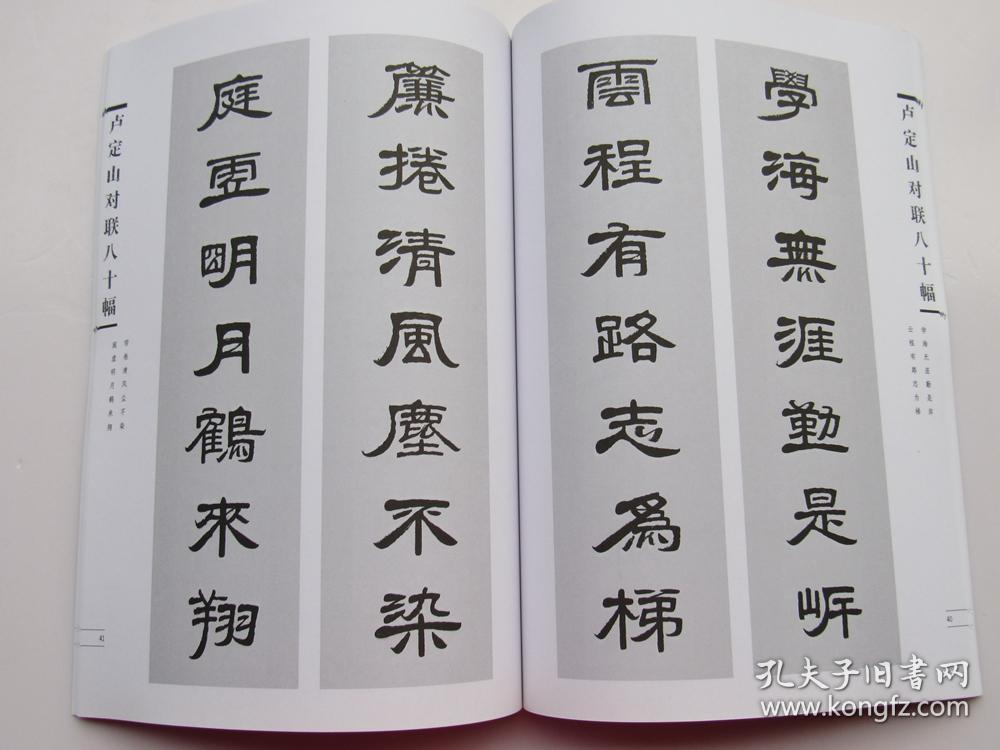 卢定山对联八十幅
学海无涯勤是岸
云程有路志为梯
40
學海無涯勤是岸
雲程有路志為梯
簾捲清風塵不染
庭虚明月鶴來翔
卢定山对联八十幅
帘卷清风尘不染
庭虚明月鹤来翔
41
孔夫子旧書网
www.kongfz.com